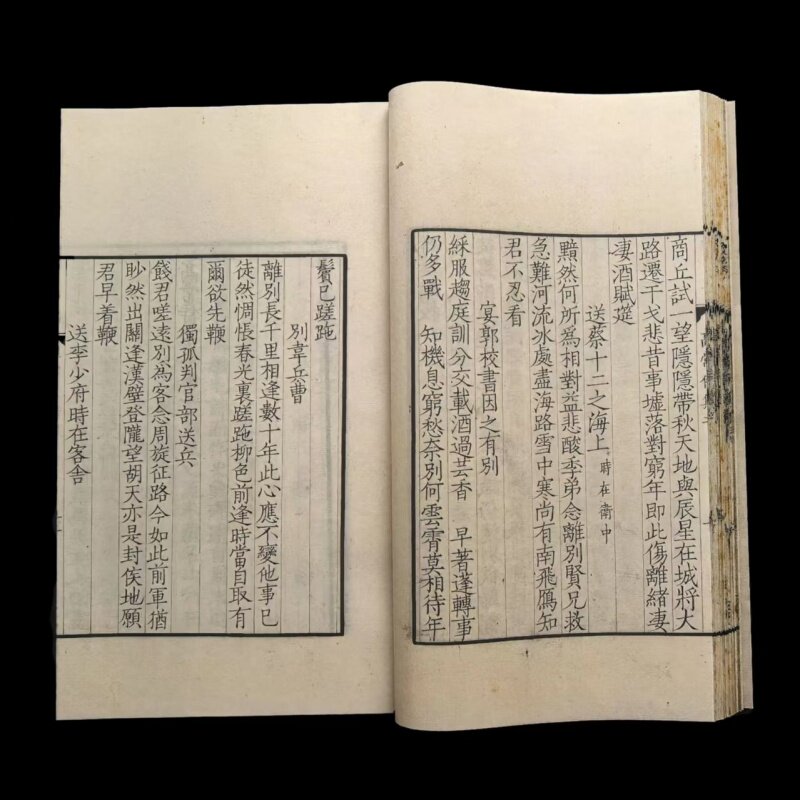 商丘試一望隱隱帶秋天地與辰星在城將大
路遷干戈悲昔事墟落對窮年即此傷離緒凄
凄酒賦筵
送蔡十二之海上 時在衛中
黯然何所爲相對益悲酸季弟念離別賢兄救
急難河流冰處盡海路雪中寒尚有南飛鴈知
君不忍看
宴郭校書因之有別
綵服趨庭訓分交載酒過芸香 早著蓬轉事
仍多戰 知機息窮愁奈別何雲霄莫相待年
鬢已蹉跎
別韋兵曹
離別長千里相逢數十年此心應不變他事已
徒然惆悵春光裏蹉跎柳色前逢時當自取有
爾欲先鞭
獨孤判官部送兵
餞君嗟遠別爲客念周旋征路今如此前軍猶
眇然出關逢漢壁登隴望胡天亦是封侯地願
君早着鞭
送李少府時在客舍